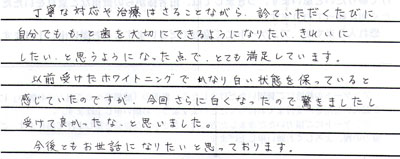 丁寧な対応や治療はさることながら、診ていただくたびに
自分でももっと歯を大切にできるようになりたい、きれいに
したい、と思うようになった点で、とても満足しています。
以前受けたホワイトニングでかなり白い状態を保っていると
感じていたのですが、今回さらに白くなったので驚きましたし
受けて良かったな、と思いました。
今後ともお世話になりたいと思っております。